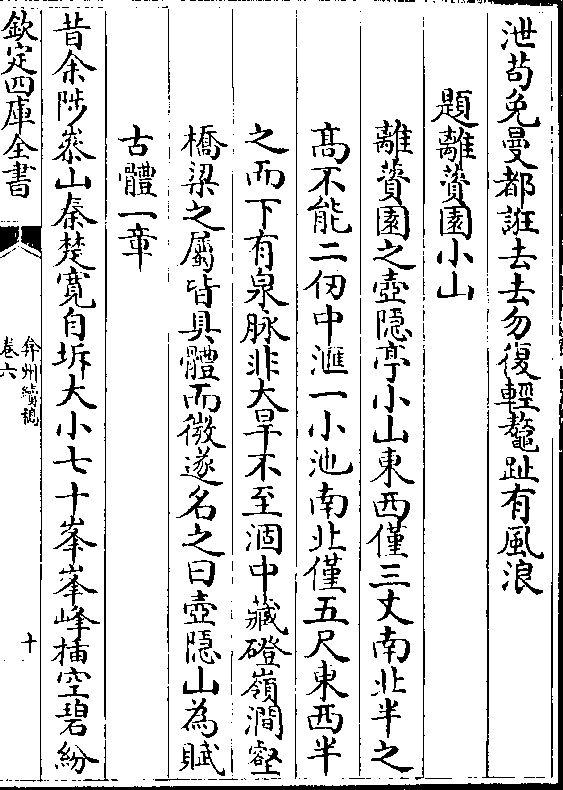 泄苟免曼都誑去去勿復輕鼇趾有風浪
題離薋園小山
離薋園之壺隠亭小山東西僅三丈南北半之
髙不能二仞中滙一小池南北僅五尺東西半
之而下有泉脉非大旱不至涸中藏磴嶺澗壑
橋梁之屬皆具體而微遂名之曰壺隠山為賦
古體一章
昔余陟泰山秦楚寛自坼大小七十峯峯峰揷空碧紛
欽定四庫全書
弇州續稿
卷六
十